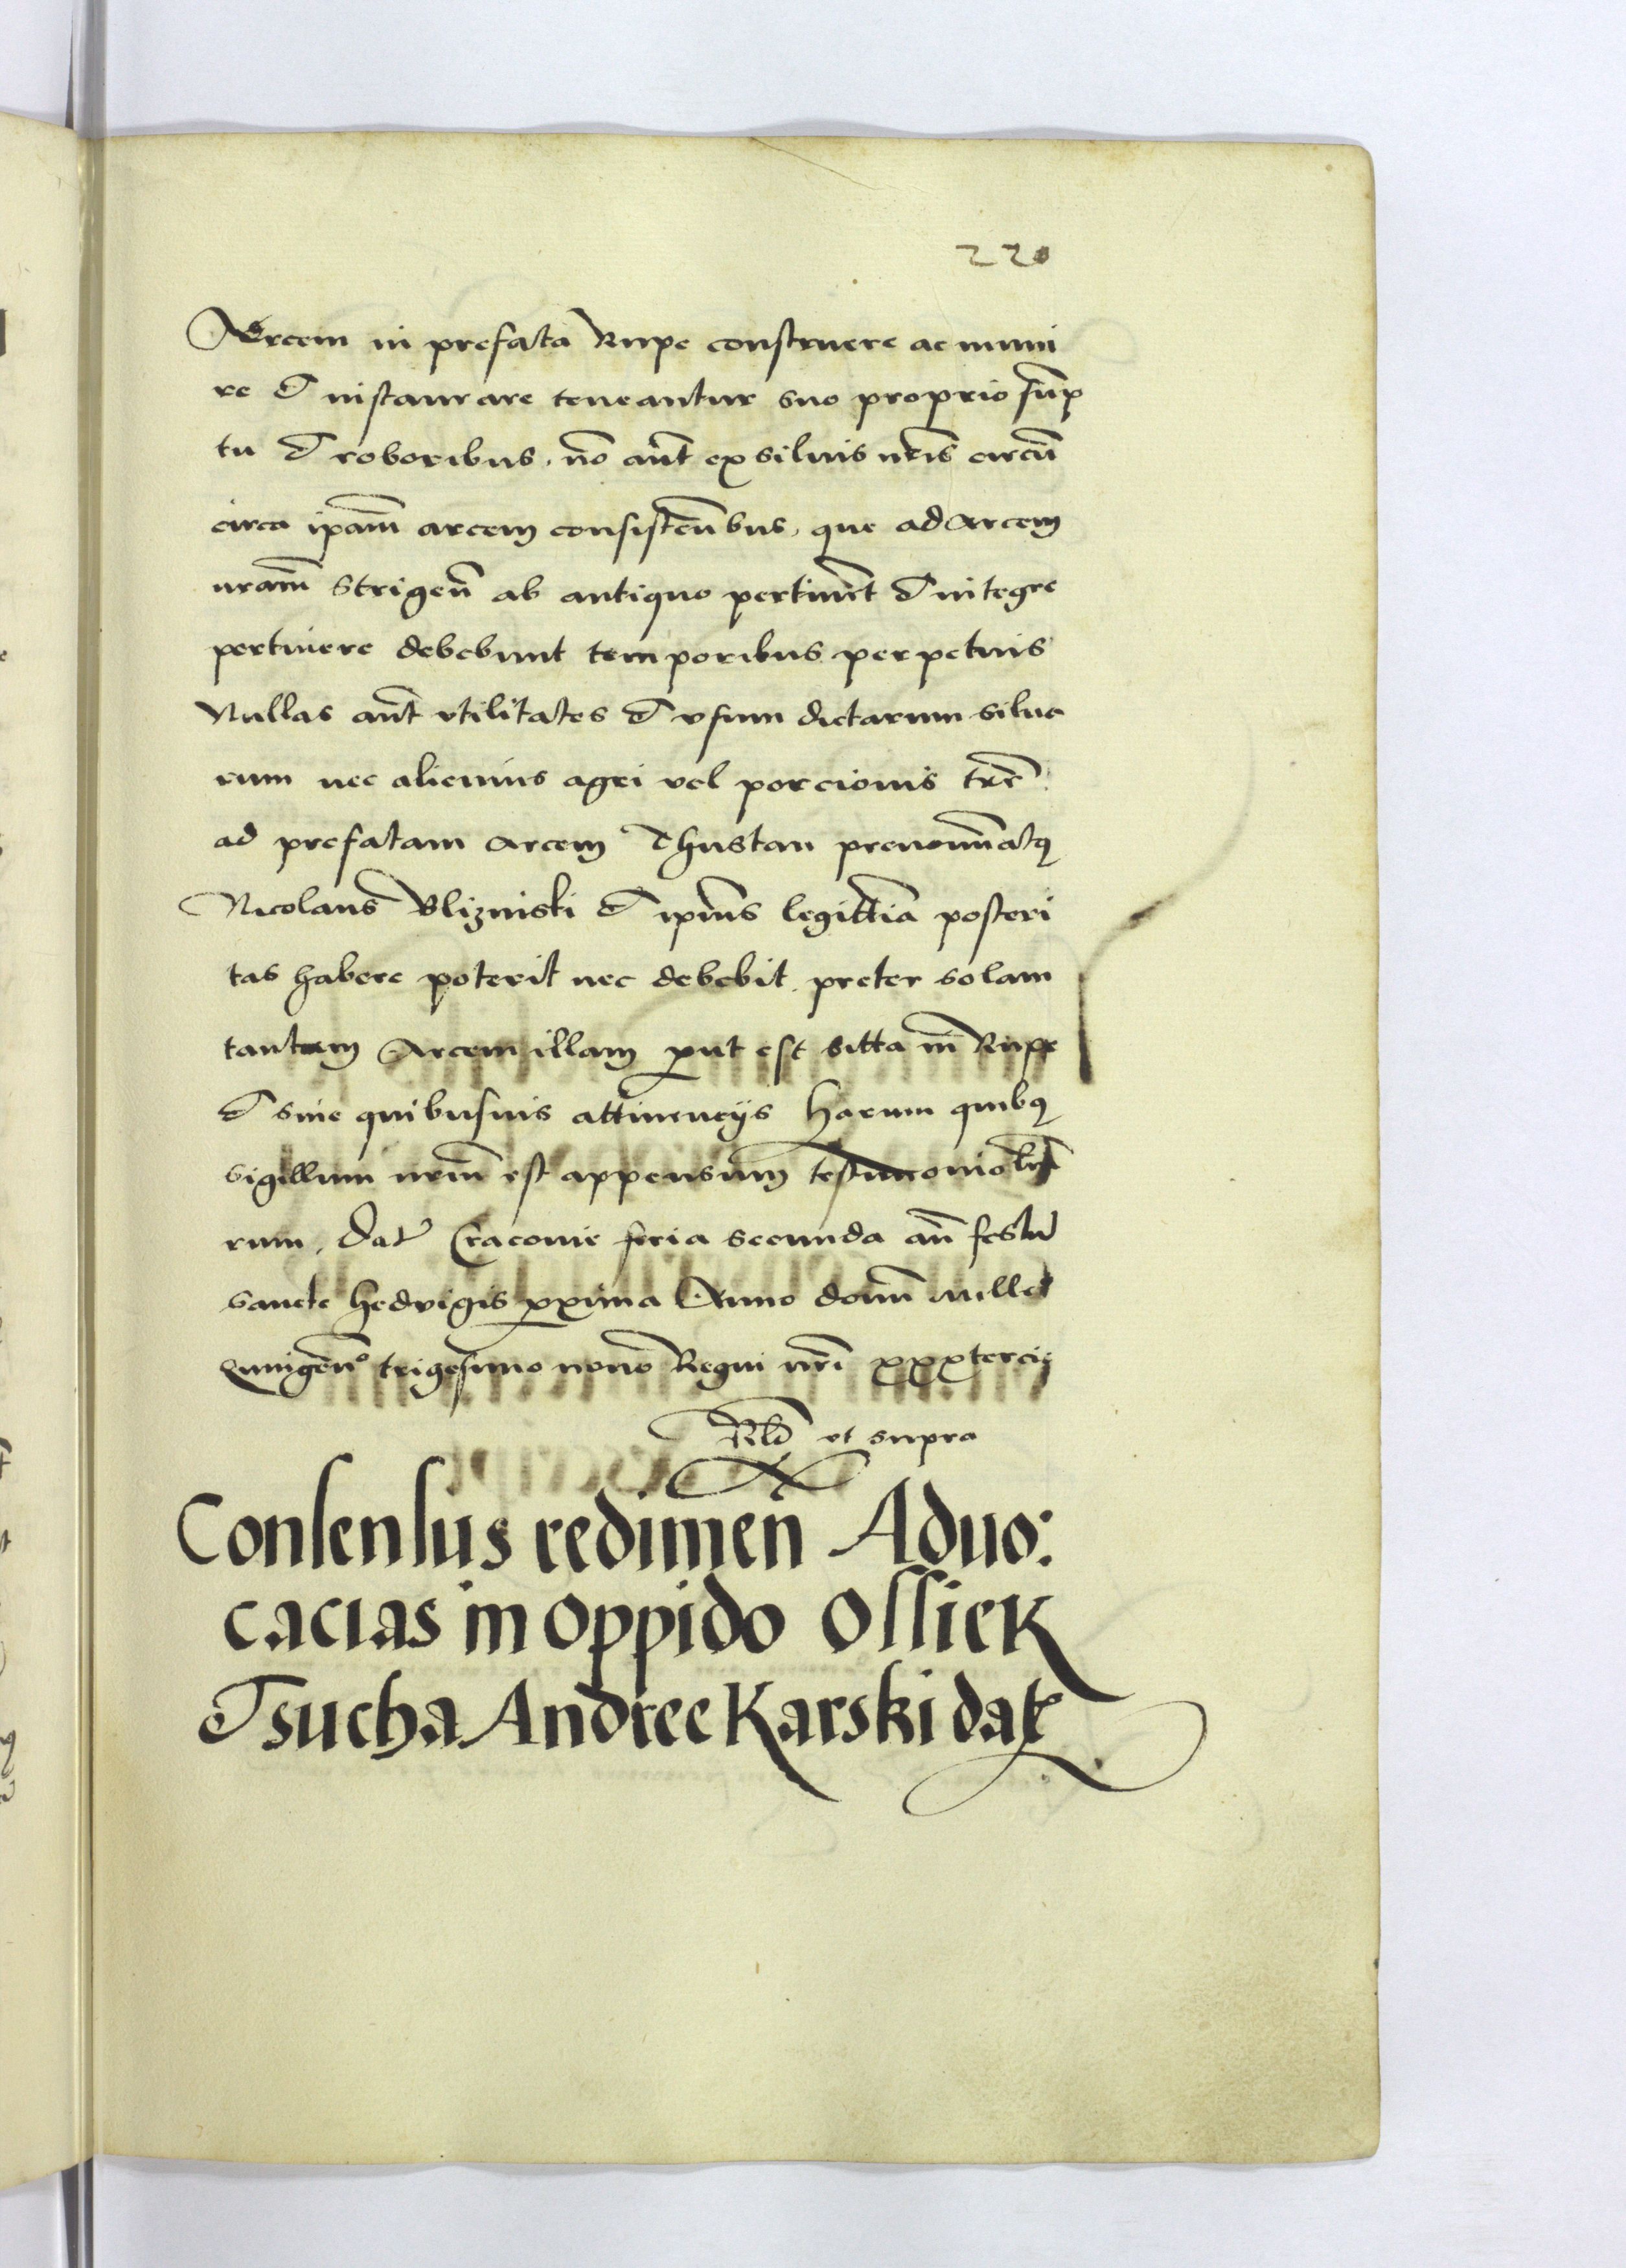 220
Arcem in prefata Rupe construere ac muni
re et instaurare teneantur suo proprio sūp
tu et roboribus, nō aūt ex siluis nr̄is circū
circa ip̄am arcem consisteñbus, que ad Arcem
nr̄am Strigeñ ab antiquo pertinēt et integre
pertinere debebunt temporibus perpetuis
Nullas aūt vtilitates et vsum dictarum silua
rum nec alicuius agri vel porcionis tr̄e
ad prefatam Arcem Thustan prenoīatus
Nicolaus Blizinski et ip̄ius legittīa posteri
tas habere poterit nec debebit, preter solam
tantum Arcem illam put est sitta in Rupe
et sine quibusuis attinencijs Harum quibus
sigillum nr̄m est appensum testimonio lr̄a
rum, Dat Cracovie feria secunda añ festū
sancte Hedvigis pxima Anno domī mille
Quingeño trigesimo nono Regni nr̄i xxxtercij
Rl̄o ut supra
Consensus redimeñ Aduo:
cacias in oppido Ossiek
et sucha Andree Karski dat